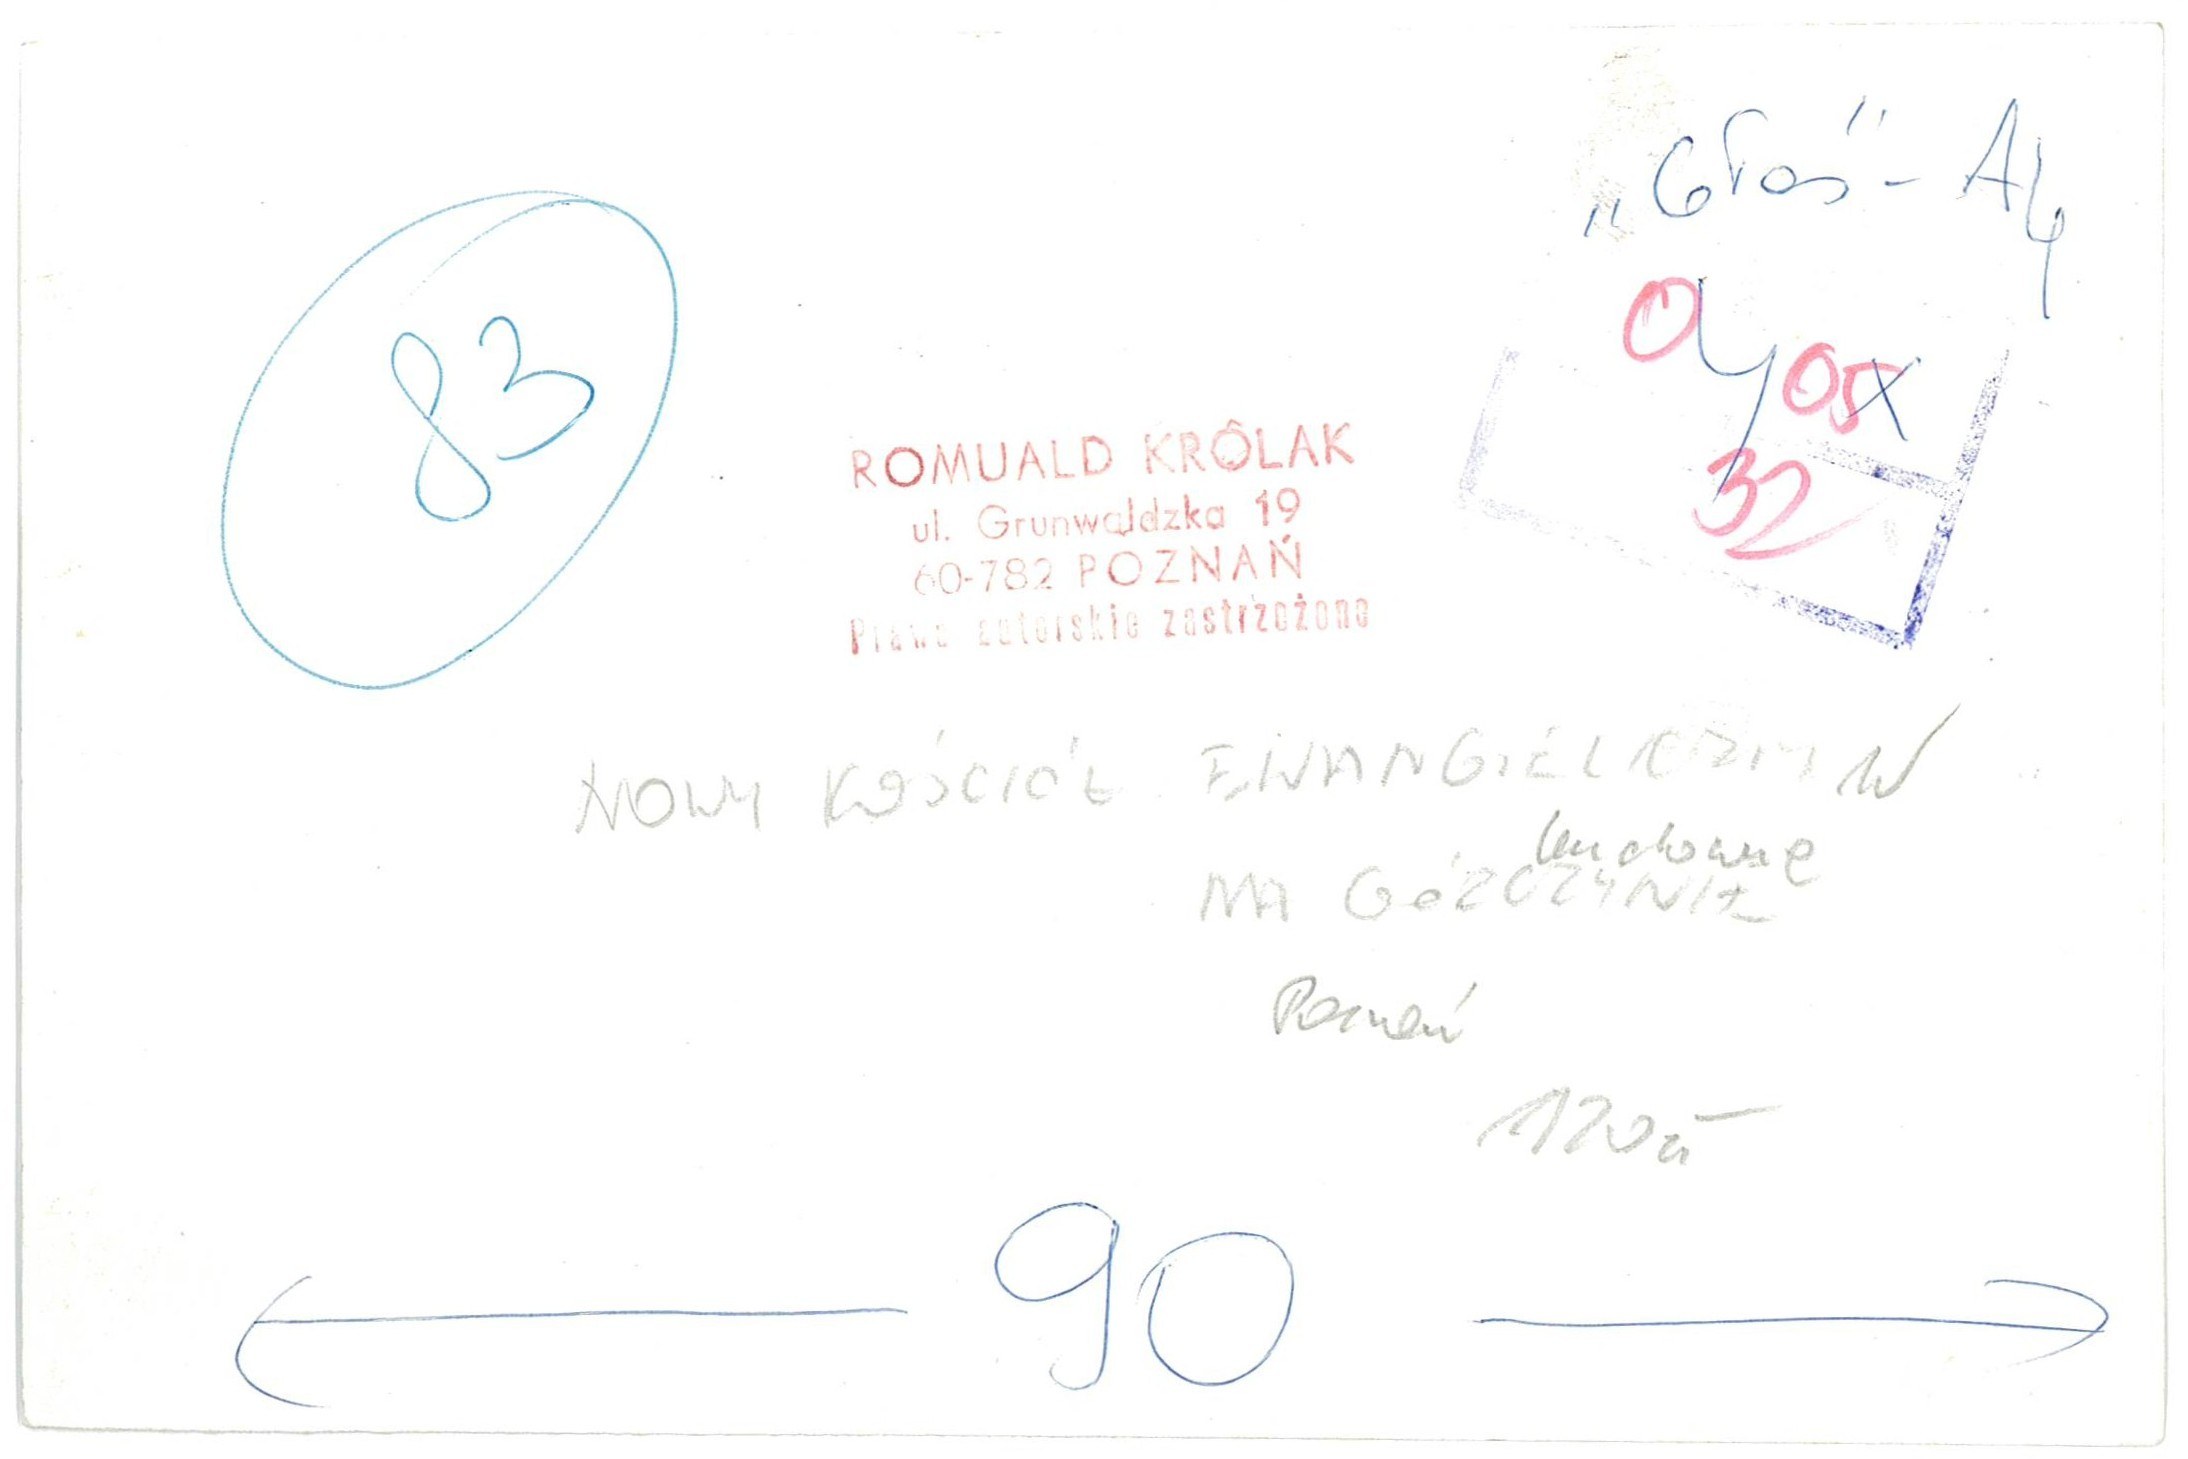 „Głos" - A4
83
04 05 X
32
ROMUALD KRÔLAK
ul. Grunwaldzka 19
60-782 POZNAŃ
Prawa autorskie zastrzeżone
NOWY KOŚCIÓŁ EWANGIELICZNY W
NA GÓRCZYNIE
Poznań
90